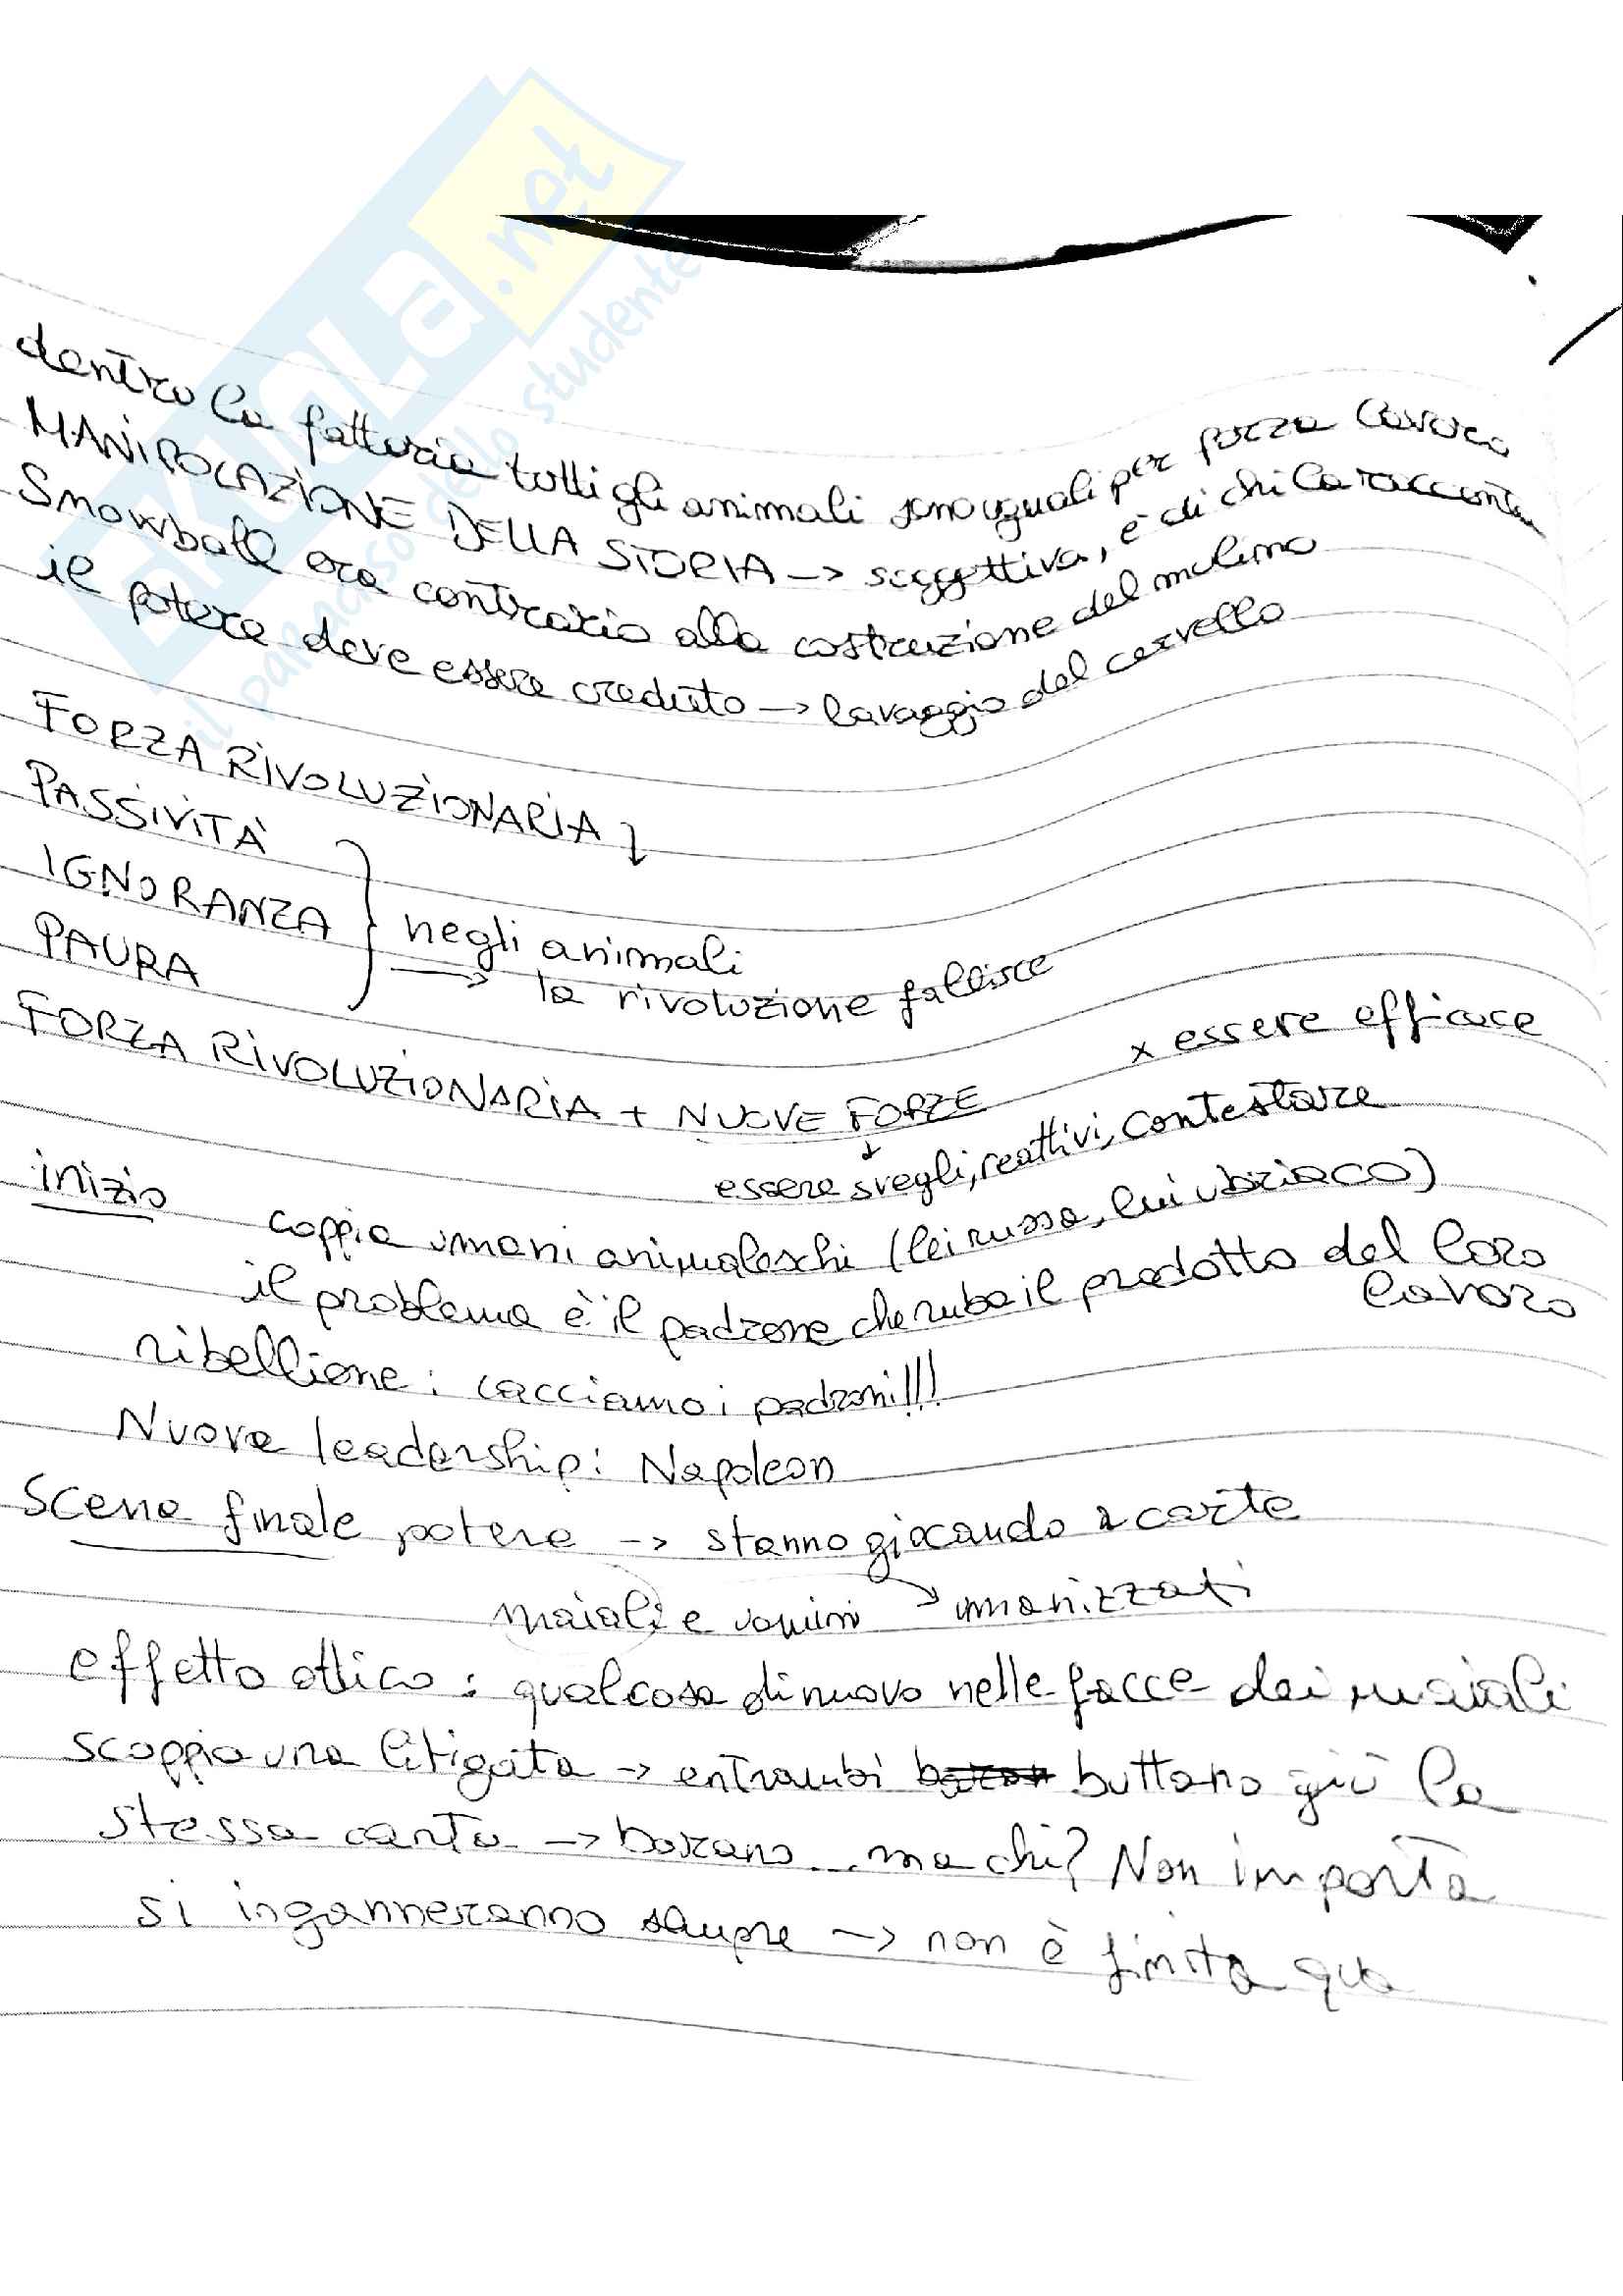 SKUOLA.net
il paradiso dello studente
dentro la fattoria tutti gli animali sono uguali per forza lavoro
MANIPOLAZIONE DELLA STORIA -> soggettiva, è di chi la racconta
Snowball era contrario alla costruzione del mulino
il potere deve essere creduto -> lavaggio del cervello
FORZA RIVOLUZIONARIA ↓
PASSIVITÀ
IGNORANZA
PAURA
negli animali
-> la rivoluzione fallisce
FORZA RIVOLUZIONARIA + NUOVE FORZE x essere efficace
↓
essere svegli, reattivi, contestare
inizio coppia umani animaleschi (lei russa, lui ubriaco)
il problema è il padrone che ruba il prodotto del loro
lavoro
ribellione: cacciamo i padroni!!!
Nuova leadership: Napoleon
Scena finale potere -> stanno giocando a carte
maiali e uomini -> umanizzati
effetto ottico: qualcosa di nuovo nelle facce dei maiali
scoppia una litigata -> entrambi buttano giù la
stessa carta -> barano... ma chi? Non importa
si inganneranno sempre -> non è finita qua